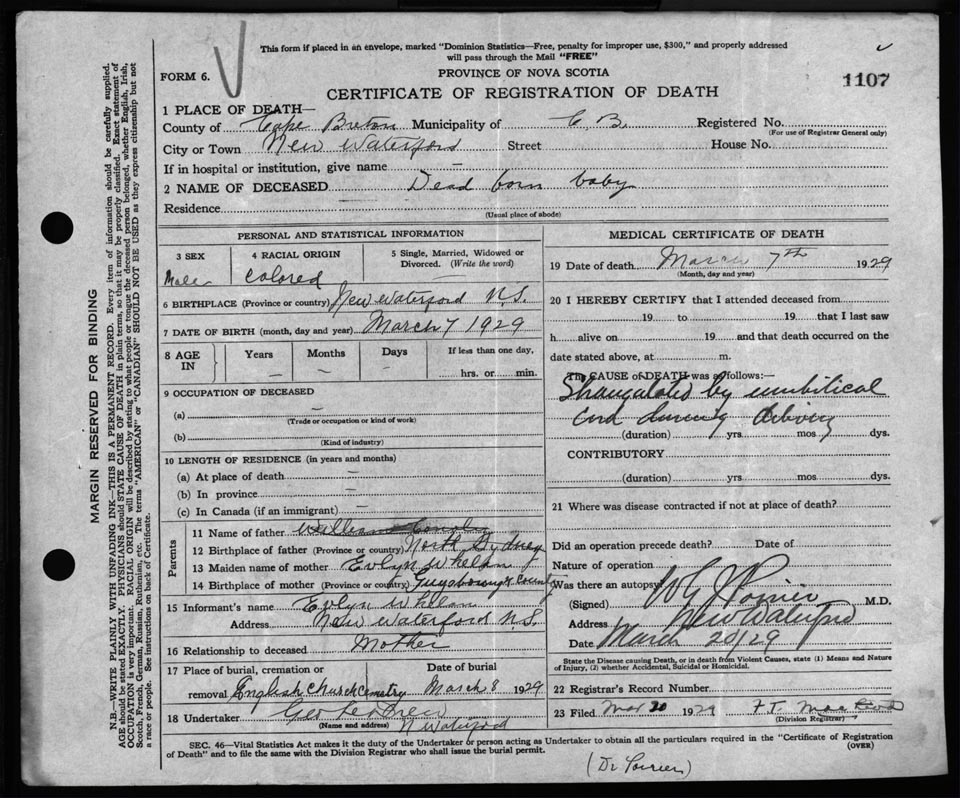 This form if placed in an envelope, marked "Dominion Statistics—Free, penalty for improper use, $300," and properly addressed
will pass through the Mail "FREE"
FORM 6.
PROVINCE OF NOVA SCOTIA
1107
CERTIFICATE OF REGISTRATION OF DEATH
1 PLACE OF DEATH—
County of Cape Breton Municipality of C.B. Registered No.
(For use of Registrar General only)
City or Town New Waterford Street House No.
If in hospital or institution, give name —
2 NAME OF DECEASED Dead born baby
Residence
(Usual place of abode)
PERSONAL AND STATISTICAL INFORMATION
3 SEX
Male
4 RACIAL ORIGIN
Colored
5 Single, Married, Widowed or
Divorced. (Write the word)
6 BIRTHPLACE (Province or country) New Waterford N.S.
7 DATE OF BIRTH (month, day and year) March 7 1929
8 AGE
IN
Years
—
Months
—
Days
—
If less than one day,
hrs. or min.
9 OCCUPATION OF DECEASED
(a) —
(Trade or occupation or kind of work)
(b)
(Kind of industry)
10 LENGTH OF RESIDENCE (in years and months)
(a) At place of death —
(b) In province —
(c) In Canada (if an immigrant) —
Parents
11 Name of father William
12 Birthplace of father (Province or country) North Sydney
13 Maiden name of mother Evlyn Whelan
14 Birthplace of mother (Province or country) Guysborough County
15 Informant's name Evlyn Whelan
Address New Waterford N.S.
16 Relationship to deceased Mother
17 Place of burial, cremation or
removal English Church Cemetry
Date of burial
March 8 1929
18 Undertaker Geo
(Name and address) N Waterford
MEDICAL CERTIFICATE OF DEATH
19 Date of death March 7th 1929
(Month, day and year)
20 I HEREBY CERTIFY that I attended deceased from
19 to 19 that I last saw
h alive on 19 and that death occurred on the
date stated above, at m.
The CAUSE of DEATH was as follows:—
Strangulated by umbilical
cord during
(duration) yrs mos dys.
CONTRIBUTORY
(duration) yrs. mos. dys.
21 Where was disease contracted if not at place of death?
Did an operation precede death? Date of
Nature of operation
Was there an autopsy
(Signed) Poirier M.D.
Address New Waterford
Date March 20/29
State the Disease causing Death, or in death from Violent Causes, state (1) Means and Nature
of Injury, (2) whether Accidental, Suicidal or Homicidal.
22 Registrar's Record Number
23 Filed Mar 20 1929 F.T.
(Division Registrar)
SEC. 46—Vital Statistics Act makes it the duty of the Undertaker or person acting as Undertaker to obtain all the particulars required in the "Certificate of Registration
of Death" and to file the same with the Division Registrar who shall issue the burial permit.
(OVER)
(Dr Poirier)
MARGIN RESERVED FOR BINDING
N.B.—WRITE PLAINLY WITH UNFADING INK—THIS IS A PERMANENT RECORD. Every item of information should be carefully supplied.
AGE should be stated EXACTLY. PHYSICIANS should STATE CAUSE OF DEATH in plain terms, so that it may be properly classified. Exact statement of
OCCUPATION is very important. RACIAL ORIGIN will be described by stating to what people or tongue the deceased person belonged, whether English, Irish,
Scotch, French, German, Russian, Ruthenian, etc. The terms "AMERICAN" or "CANADIAN" SHOULD NOT BE USED as they express citizenship but not
a race or people. See instructions on back of Certificate.